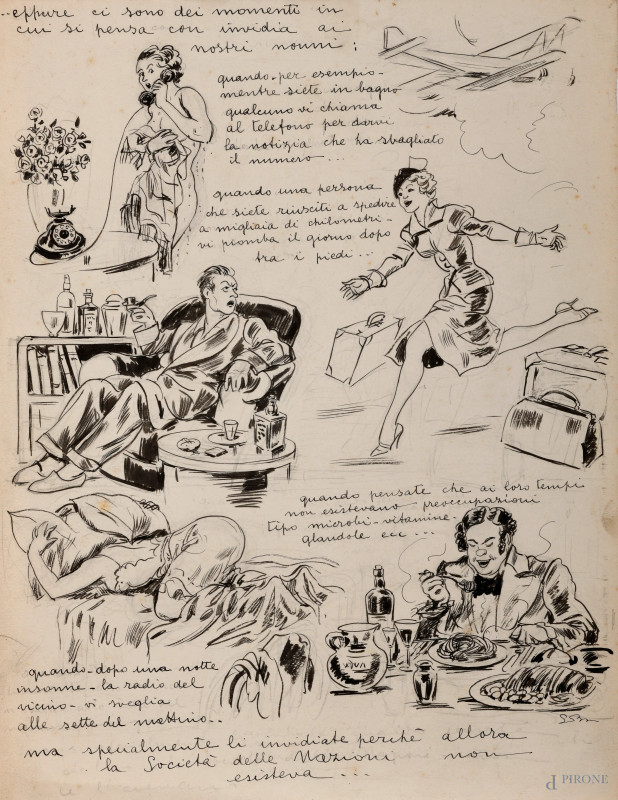 ..eppure ci sono dei momenti in
cui si pensa con invidia ai
nostri nonni :
quando-per esempio-
mentre siete in bagno
qualcuno vi chiama
al telefono per darvi
la notizia che ha sbagliato
il numero-...
quando una persona
che siete riusciti a spedire
a migliaia di chilometri-
vi piomba il giorno dopo
tra i piedi...
quando pensate che ai loro tempi
non esistevano preoccupazioni
tipo microbi-vitamine-
glandole ecc ...
quando-dopo una notte
insonne-la radio del
vicino-vi sveglia
alle sette del mattino..
ma specialmente li invidiate perchè allora
la Società delle Nazioni non
esisteva ...
PIRONE